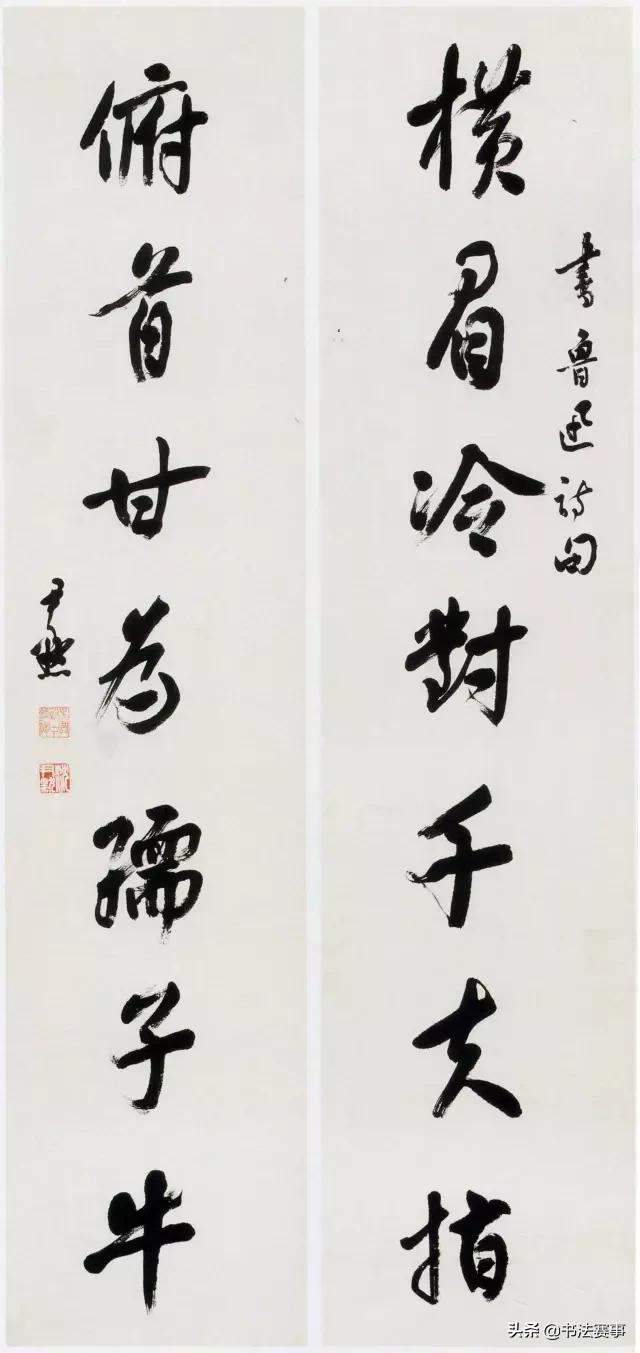 書魯迅詩句
橫眉冷對千夫指
俯首甘為孺子牛
尹默
沈尹默
头条 @书法赛事